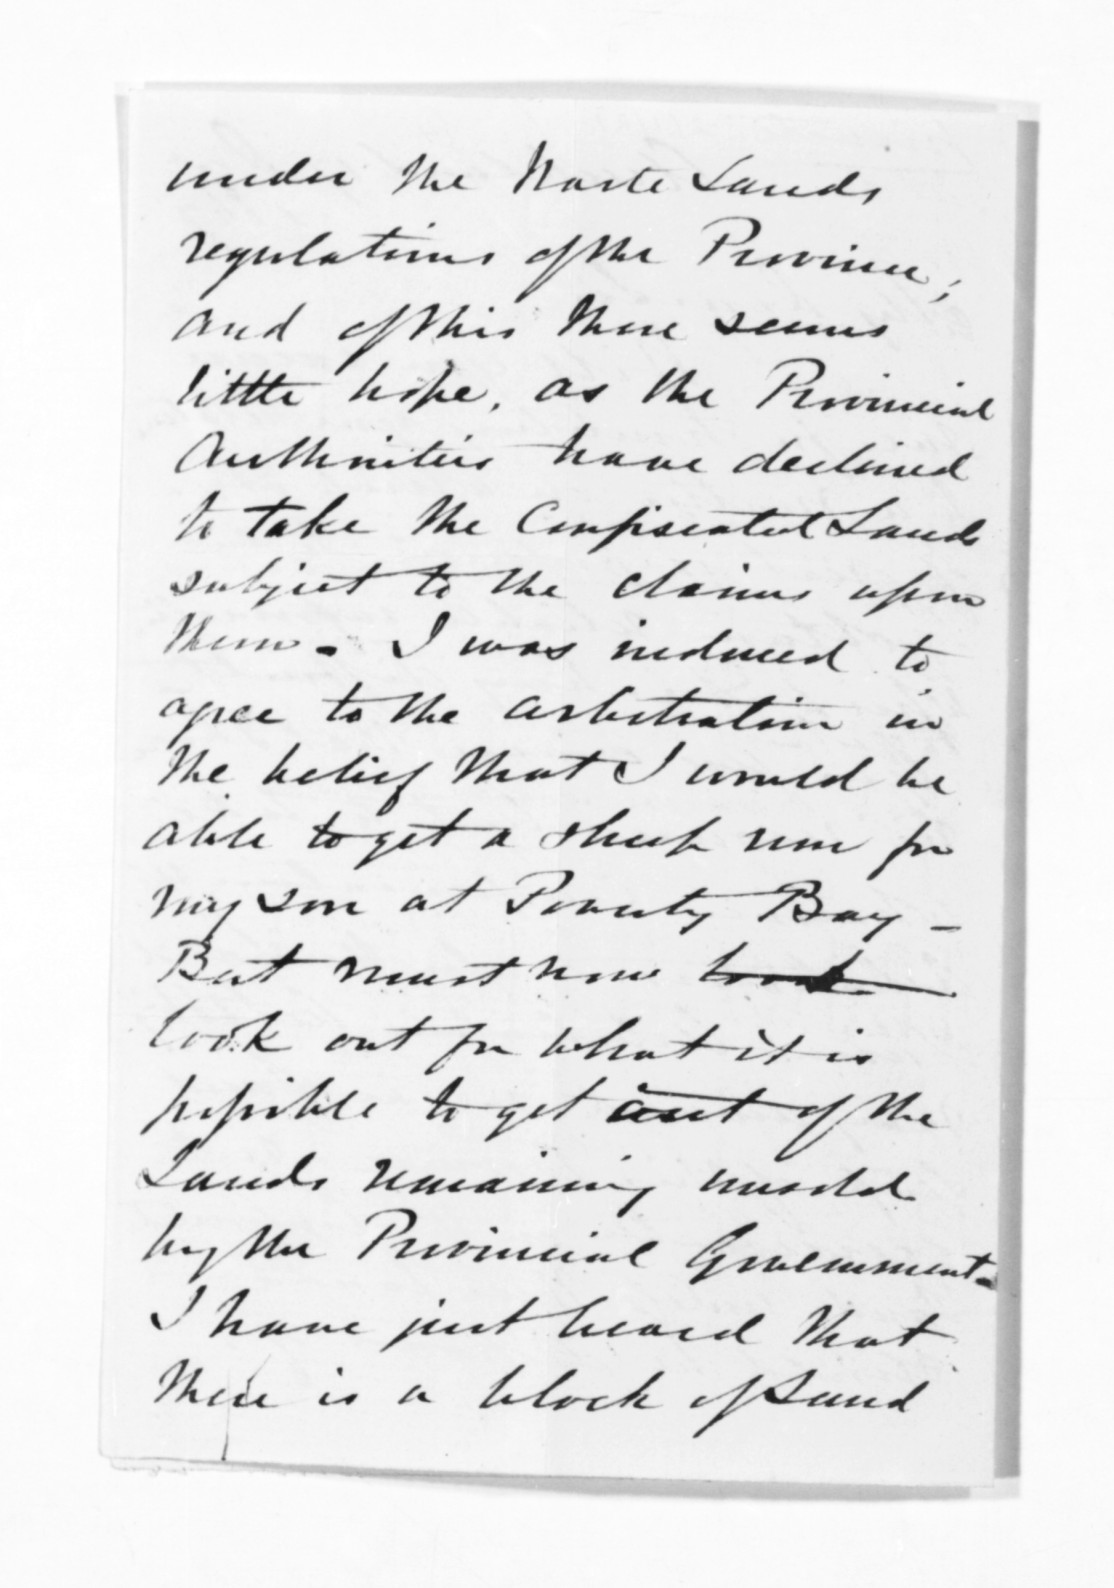 under the Waste Lands
regulations of the Province;
and of this there seems
little hope, as the Provincial
Authorities have declined
to take the Confiscated Lands
subject to the claims upon
them. I was induced to
agree to the arbitration in
the belief that I would be
able to get a sheep run for
my son at Poverty Bay -
But must now look
look out for what it is
possible to get out of the
Lands remaining unsold
by the Provincial Government.
I have just heard that
there is a block of Land